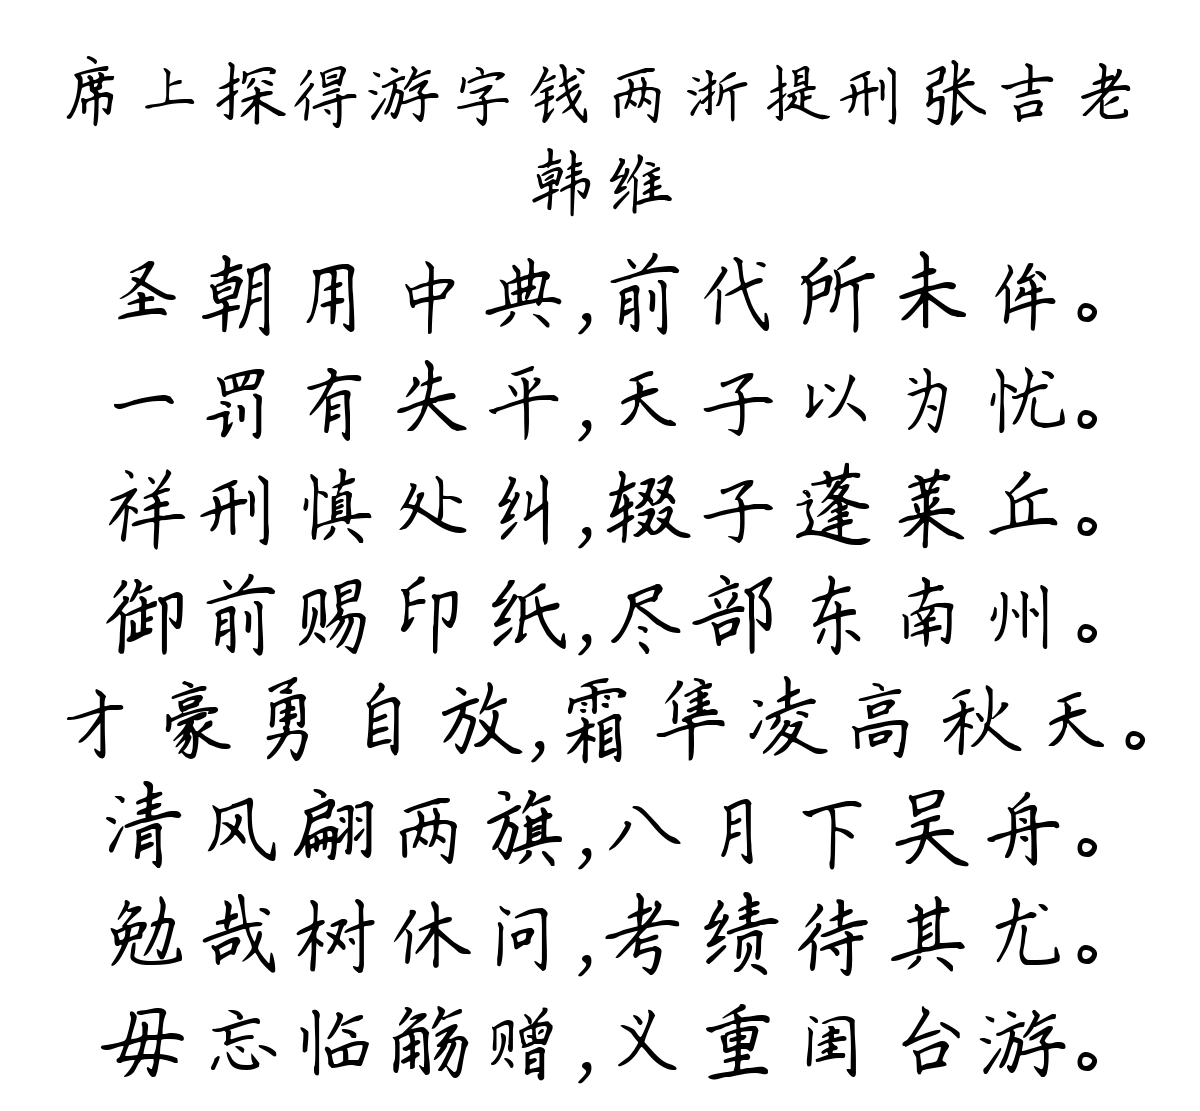 席上探得游字钱两浙提刑张吉老
韩维
圣朝用中典,前代所未侔。
一罚有失平,天子以为忧。
祥刑慎处纠,辍子蓬莱丘。
御前赐印纸,尽部东南州。
才豪勇自放,霜隼凌高秋天。
清风翩两旗,八月下吴舟。
勉哉树休问,考绩待其尤。
毋忘临觞赠,义重闺台游。